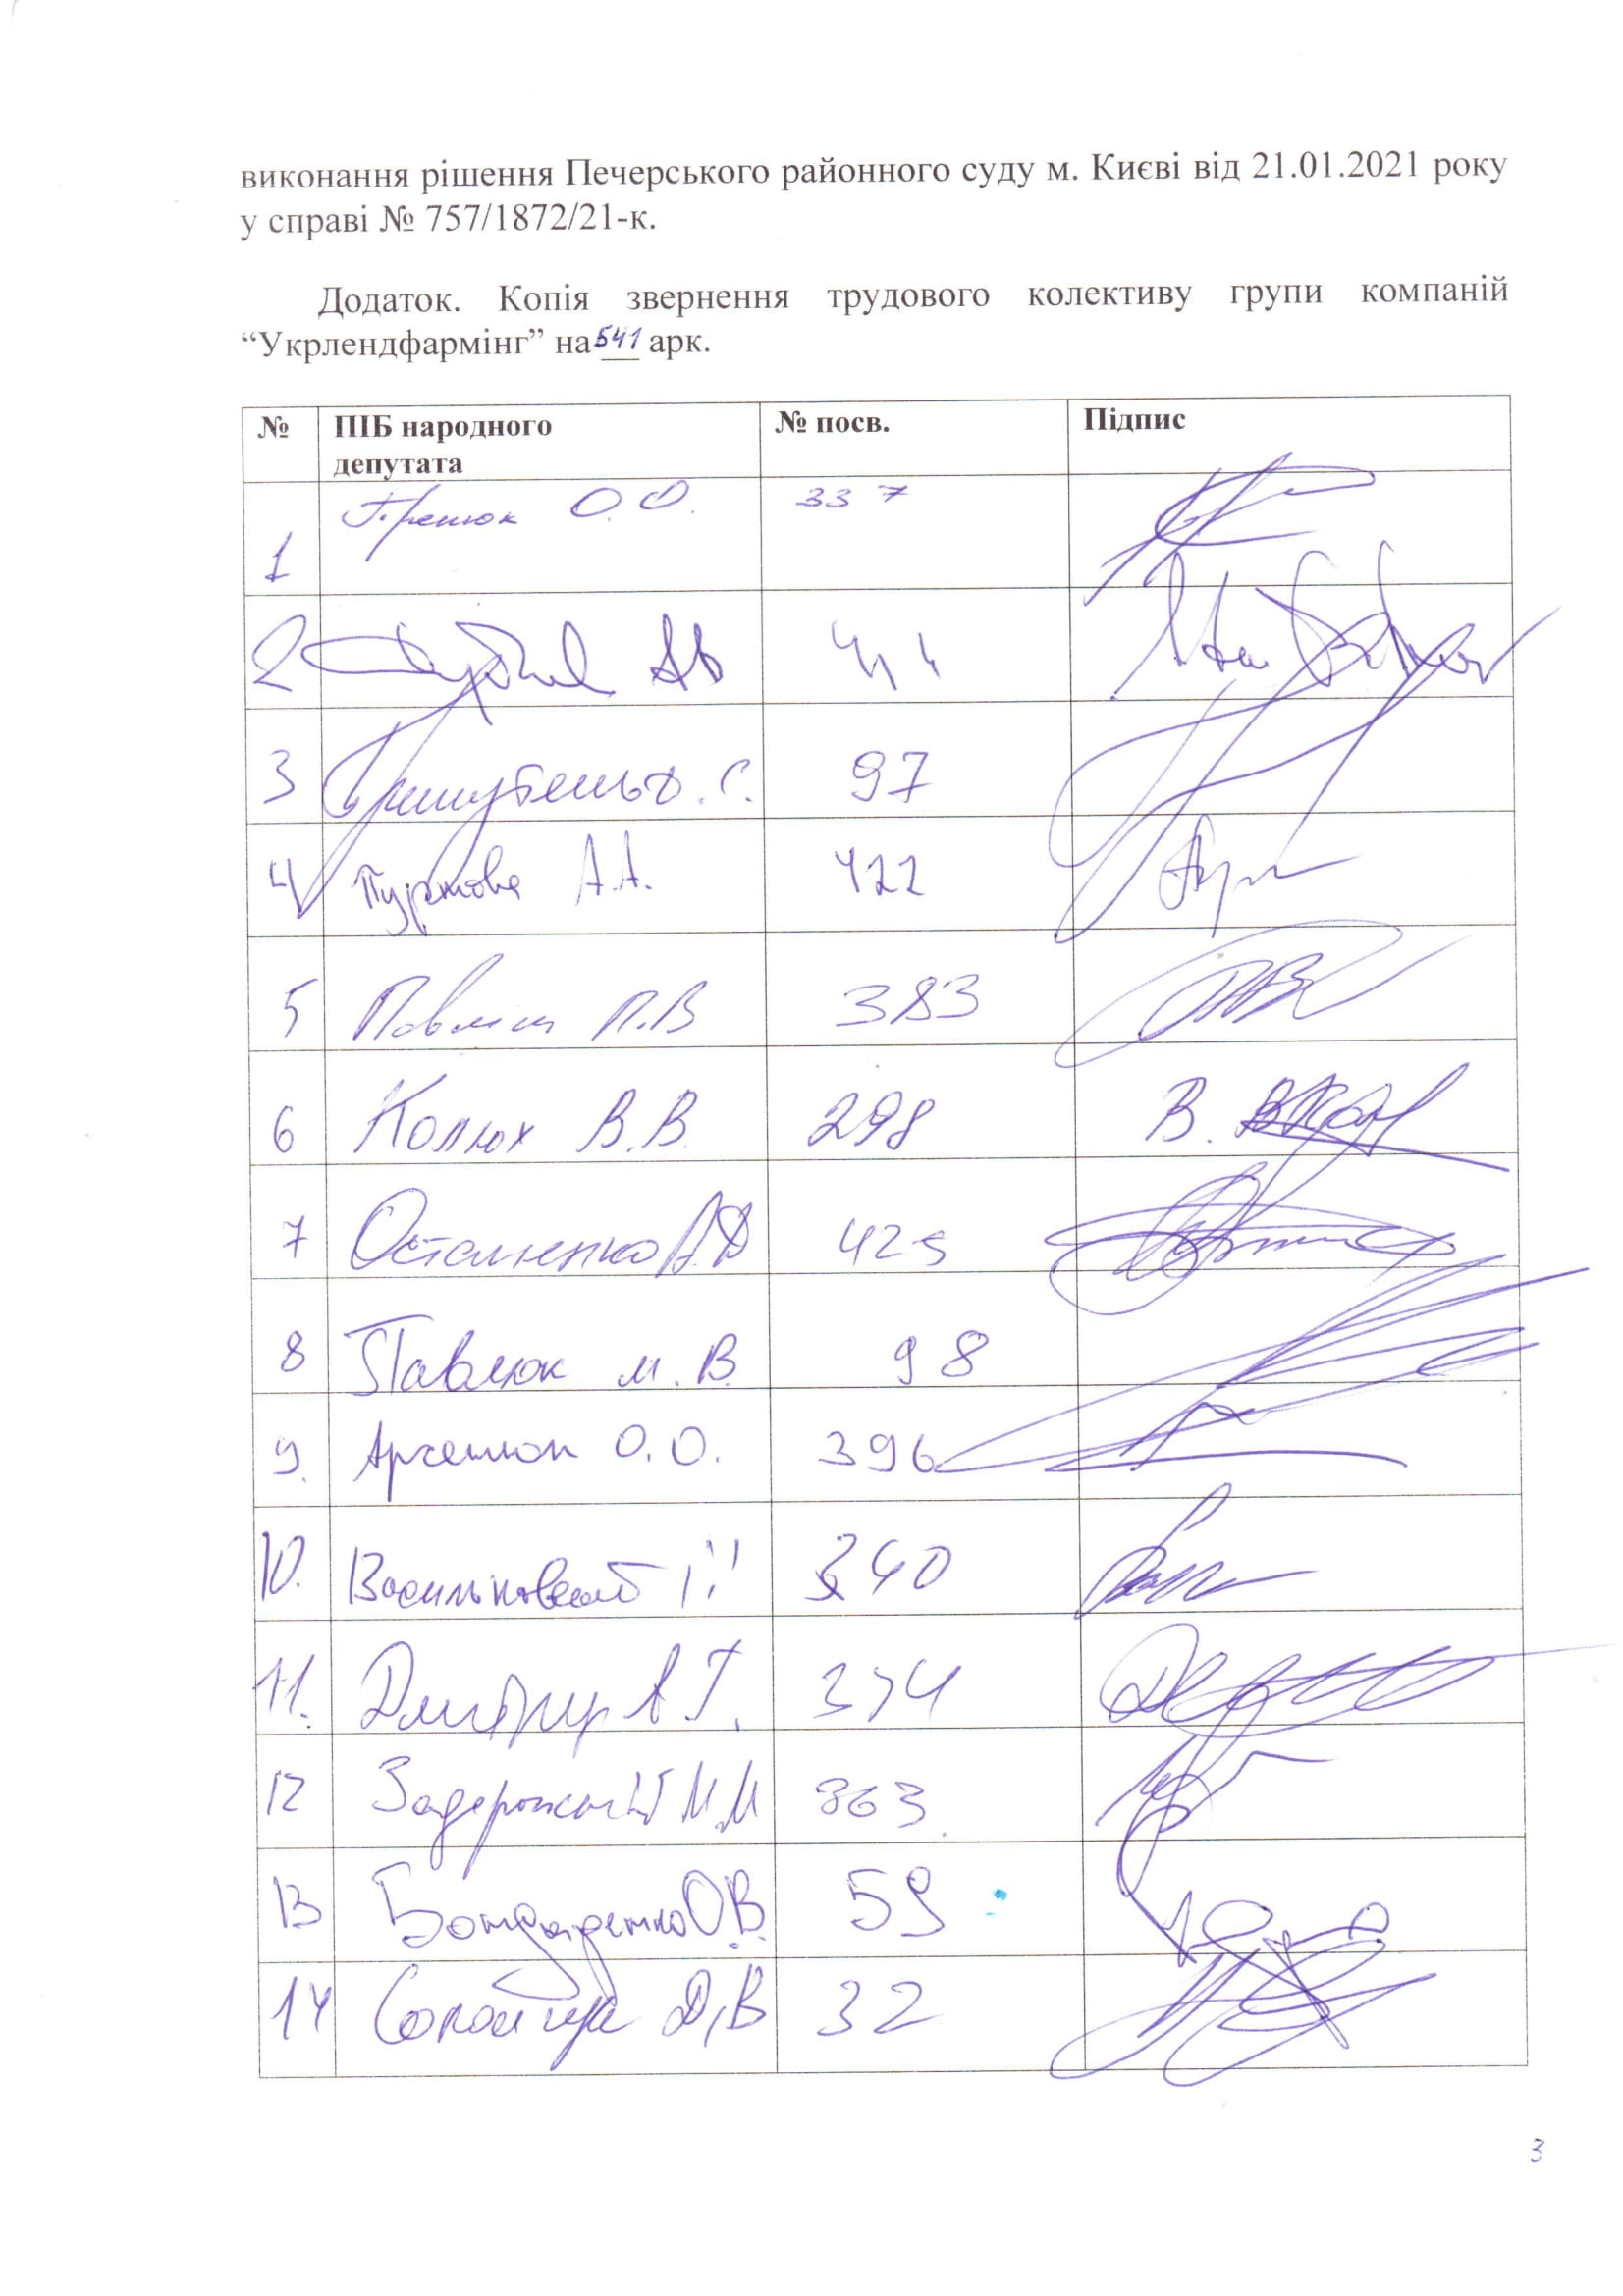 виконання рішення Печерського районного суду м. Києві від 21.01.2021 року
у справі № 757/1872/21-к.
Додаток. Копія звернення трудового колективу групи компаній
“Укрлендфармінг” на 541 арк.
№ ПІБ народного депутата № посв. Підпис
1 О.О. 337
2 АВ
3 97
4 Пуртова А.А. 422
5 Павліш П.В 383
6 Колюх В.В. 298
7 Остапенко А.Д 425
8 Павлюк М.В. 98
9. Арсенюк О.О. 396
10. Васильковський І.І 340
11. 374
12 Задорожній М.М 363
13 Бондаренко О.В. 59
14 Д,В 32
3